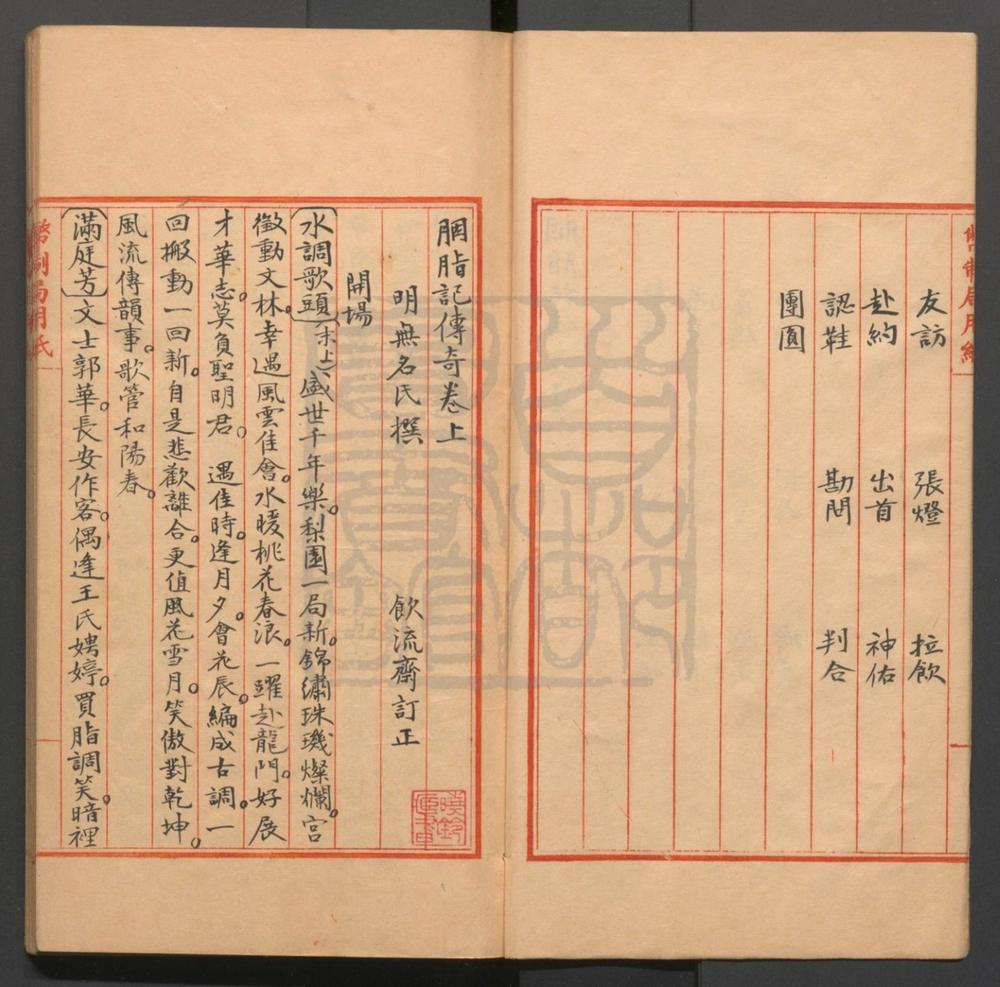 友訪　張燈　拉飲
赴約　出首　神佑
認鞋　勘問　判合
團圓
胭脂記傳奇卷上
明無名氏撰　飲流齋訂正
開場
〔水調歌頭〕（末上）盛世千年樂。梨園一局新。錦繡珠璣燦爛。宮
徵動文林。幸遇風雲佳會。水暖桃花春浪。一躍赴龍門。好展
才華志。莫負聖明君。　遇佳時。逢月夕。會花辰。編成古調。一
回搬動一回新。自是悲歡離合。更值風花雪月。笑傲對乾坤。
風流傳韻事。歌管和陽春。
〔滿庭芳〕文士郭華。長安作客。偶逢王氏娉婷。買脂調笑。暗裡